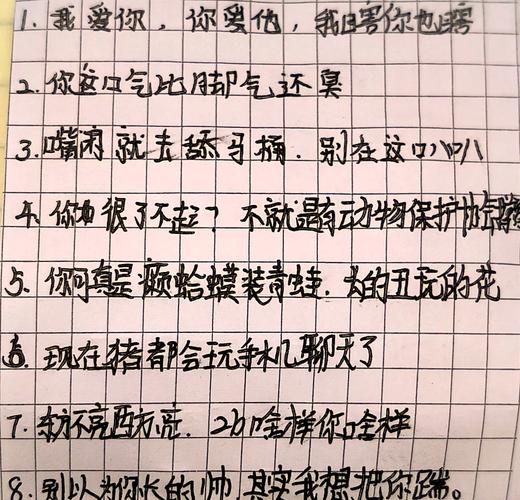 1. 我爱你，你爱他，我瞎你也瞎
2. 你这口气比脚气还臭
3. 嘴闲就去舔马桶．别在这口八叭
4. 你很了不起？不就是有动物保护协会
5. 你可真是癞蛤蟆装青蛙．长的丑玩的花
6. 现在猪都会玩手机聊天了
7. 东方不亮西方亮．2b啥样你啥样
8. 别以为你长的帅，其实我想把你踹。